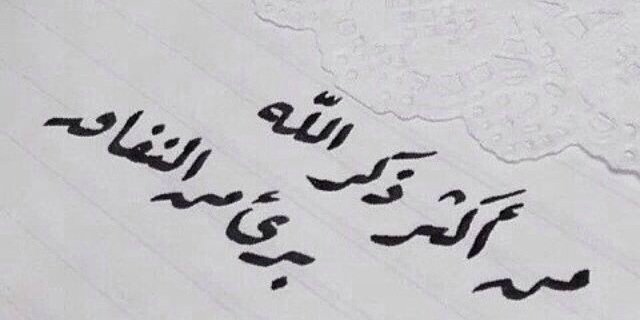 من أكثر ذكر الله
برئ من النفاق